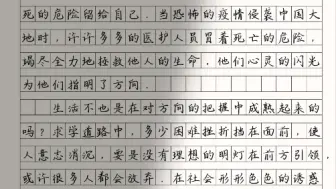 死的危险留给自己。当恐怖的疫情侵袭中国大
地时，许许多多的医护人员冒着死亡的危险，
竭尽全力地拯救他人的生命，他们心灵的闪光
为他们指明了方向。
生活不也是在对方向的把握中成熟起来的
吗？求学道路中，多少困难挫折挡在面前，使
人意志消沉，要是没有理想的明灯在前方引领，
或许很多人都会放弃。在社会形形色色的诱惑